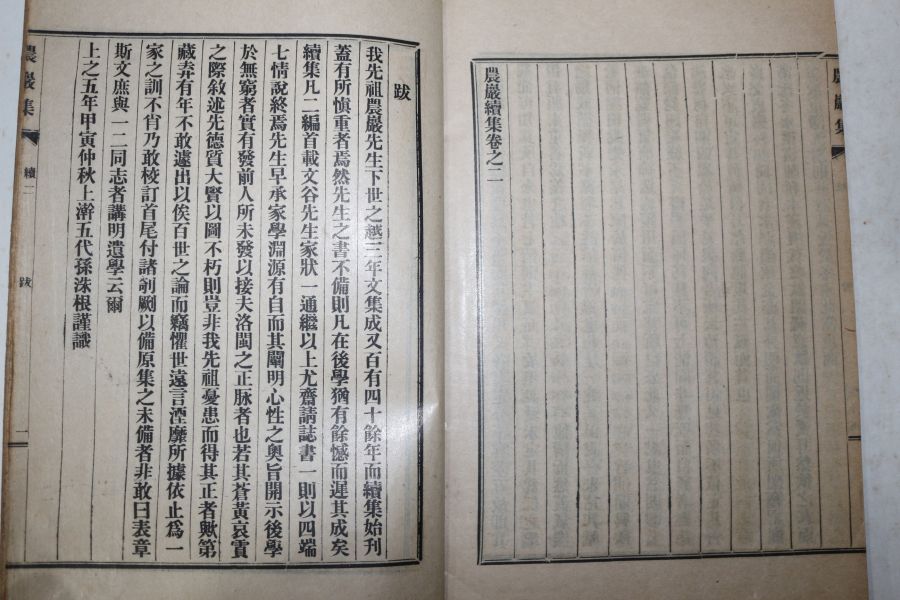 農巖集
農巖續集卷之二
跋
我先祖農巖先生下世之越三年文集成又百有四十餘年而續集始刊
蓋有所愼重者焉然先生之書不備則凡在後學猶有餘憾而遲其成矣
續集凡二編首載文谷先生家狀一通繼以上尤齋請誌書一則以四端
七情說終焉先生早承家學淵源有自而其闡明心性之奧旨開示後學
於無窮者實有發前人所未發以接夫洛閩之正脉者也若其蒼黃哀霣
之際敘述先德質大賢以圖不朽則豈非我先祖憂患而得其正者歟第
藏弆有年不敢遽出以俟百世之論而竊懼世遠言湮靡所據依止爲一
家之訓不肖乃敢校訂首尾付諸剞劂以備原集之未備者非敢曰表章
斯文庶與一二同志者講明遺學云爾
上之五年甲寅仲秋上澣五代孫洙根謹識
農巖集
續二
跋
一